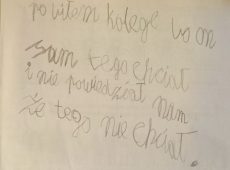 pobiłem kolegę bo on
sam tego chciał
i nie powiedział nam
że tego nie chciał.